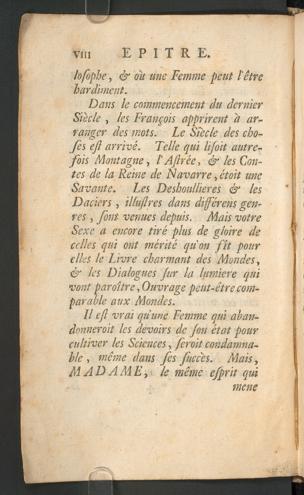 VIII EPITRE.
losophe, & où une Femme peut l'être
hardiment.
Dans le commencement du dernier
Siècle, les François apprirent à ar-
ranger des mots. Le Siècle des cho-
ses est arrivé. Telle qui lisoit autre-
fois Montagne, l'Astrée, & les Con-
tes de la Reine de Navarre, étoit une
Savante. Les Deshoullieres & les
Daciers, illustres dans différens gen-
res, sont venues depuis. Mais votre
Sexe a encore tiré plus de gloire de
celles qui ont mérité qu'on fît pour
elles le Livre charmant des Mondes,
& les Dialogues sur la lumiere qui
vont paroître, Ouvrage peut-être com-
parable aux Mondes.
Il est vrai qu'une Femme qui aban-
donneroit les devoirs de son état pour
cultiver les Sciences, seroit condamna-
ble, même dans ses succès. Mais,
MADAME, le même esprit qui
mene